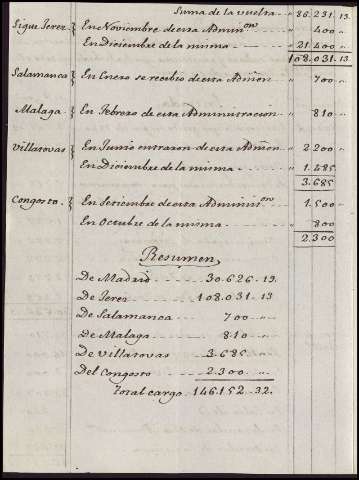 Suma de la vuelta .. 86.231. 13.
Sigue Jerez } En Noviembre de esta Admin.on .. 400 ..
En Diciembre de la misma .. 21.400 ..
108.031. 13
Salamanca } En Enero se recebio de esta Admon .. 700 ..
Malaga } En Febrero de esta Administración .. 810 ..
Villatovas } En Junio entraron de esta Admon .. 2.200 ..
En Diciembre de la misma .. 1.485 ..
3.685
Congosto } En Setiembre de esta Adminis.on .. 1.500 ..
En Octubre de la misma .. 800 ..
2.300
Resumen
De Madrid 30.626. 19.
De Jerez 108.031. 13
De Salamanca 700 ..
De Malaga 810 ..
De Villatovas 3.685 ..
Del Congosto 2.300 ..
Total cargo 146.152. 32.